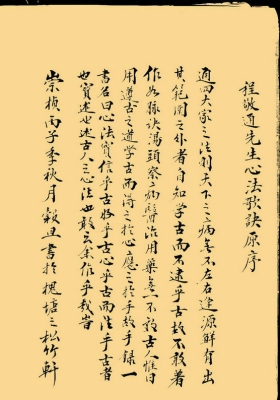 程敬通先生心法歌訣原序
通四大家之法則天下之病無不左右逢源鮮有出
其範圍之外者自知學古而不逮乎古故不敢著
作如脈訣湯頭察病醫治用藥無一不效古人惟日
用遵古之道學古而得之於心應之於手故手錄一
書名曰心法寶信乎古好乎古心乎古而法乎古者
也實述也述古人之心法也敢云余作乎哉旹
崇禎丙子季秋月穀旦書於槐塘之松竹軒